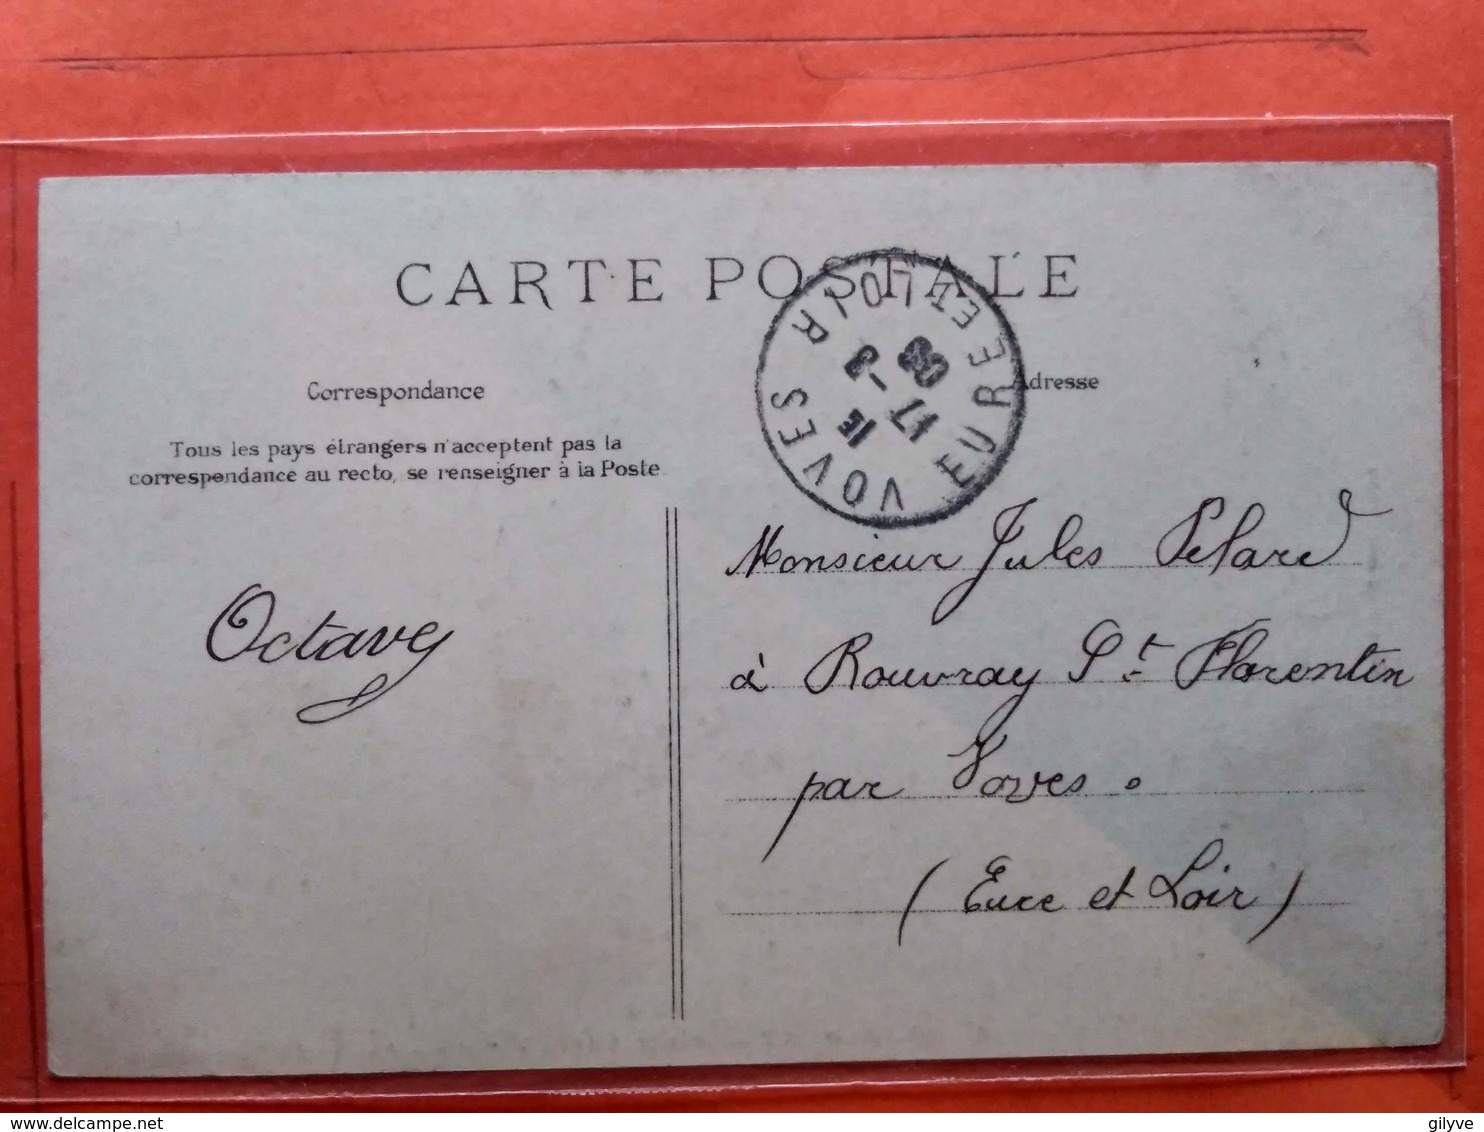 CARTE POSTALE
Correspondance
Tous les pays étrangers n'acceptent pas la
correspondance au recto, se renseigner à la Poste
Octave
VOVES EURE ET LOIR
1E
17 -3
08
Adresse
Monsieur Jules Pelard
à Rouvray St Florentin
par Voves.
(Eure et Loir)
www.delcampe.net
gilyve